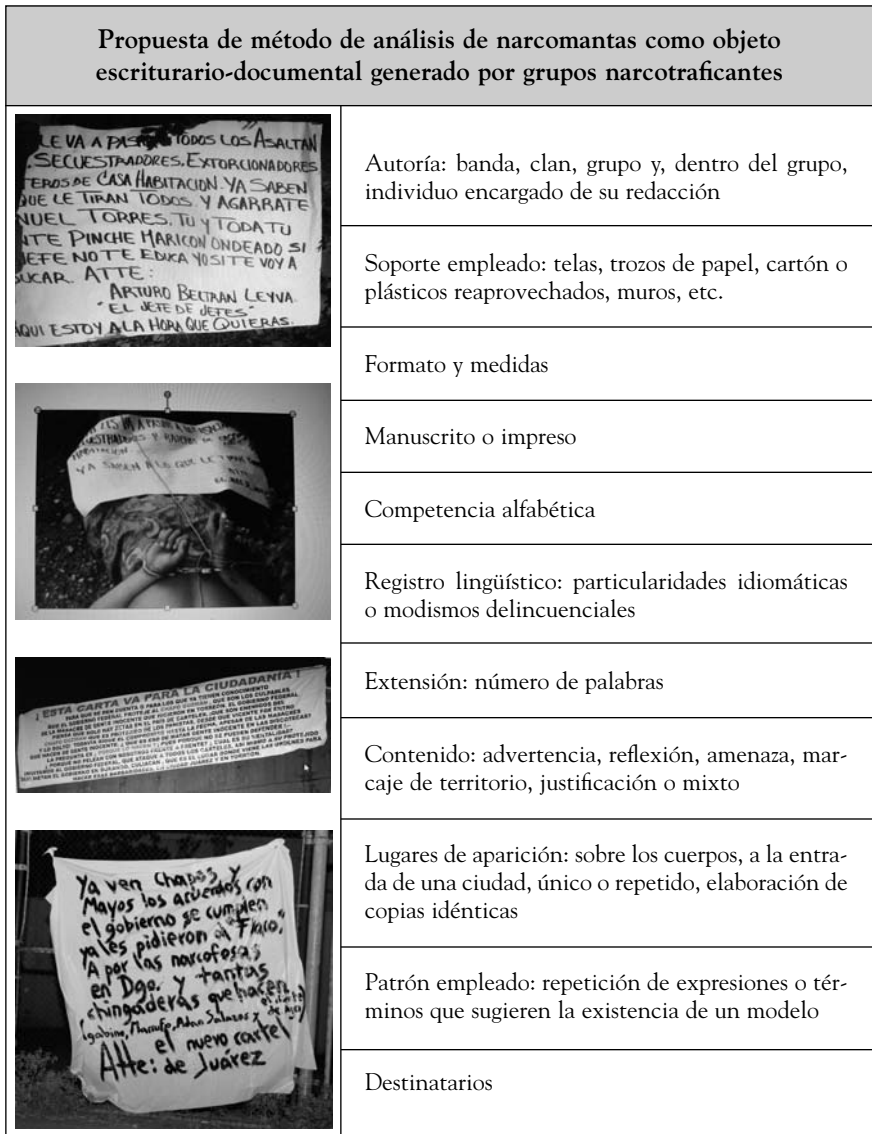 Propuesta de método de análisis de narcomantas como objeto
escriturario-documental generado por grupos narcotraficantes
LE VA A PASAR A TODOS LOS ASALTAN
SECUESTRADORES. EXTORCIONADORES
TEROS DE CASA HABITACION. YA SABEN
QUE LE TIRAN TODOS. Y AGARRATE
NUEL TORRES. TU Y TODA TU
NTE PINCHE MARICON ONDEADO SI
JEFE NO TE EDUCA YO SI TE VOY A
DUCAR. ATTE:
ARTURO BELTRAN LEYVA
"EL JEFE DE JEFES"
AQUI ESTOY A LA HORA QUE QUIERAS.
HABITACION
YA SABEN A LO QUE LE
¡ ESTA CARTA VA PARA LA CIUDADANIA !
PARA QUE SE DEN CUENTA O PARA LOS QUE YA TIENEN CONOCIMIENTO
QUE EL GOBIERNO FEDERAL PROTEJE AL CHAPO GUZMAN, QUE SON LOS CULPABLES
DE LA MASACRE DE GENTE INOCENTE QUE HICIERON EN TORREON. EL GOBIERNO FEDERAL
Ya ven Chapos y
Mayos los acuerdos con
el gobierno se cumplen
ya les pidieron al "Flaco,"
"A por las narcofosas
en Dgo. y tantas
chingaderas que hacen
el nuevo cartel
Atte: de Juárez
Autoría: banda, clan, grupo y, dentro del grupo,
individuo encargado de su redacción
Soporte empleado: telas, trozos de papel, cartón o
plásticos reaprovechados, muros, etc.
Formato y medidas
Manuscrito o impreso
Competencia alfabética
Registro lingüístico: particularidades idiomáticas
o modismos delincuenciales
Extensión: número de palabras
Contenido: advertencia, reflexión, amenaza, mar-
caje de territorio, justificación o mixto
Lugares de aparición: sobre los cuerpos, a la entra-
da de una ciudad, único o repetido, elaboración de
copias idénticas
Patrón empleado: repetición de expresiones o tér-
minos que sugieren la existencia de un modelo
Destinatarios